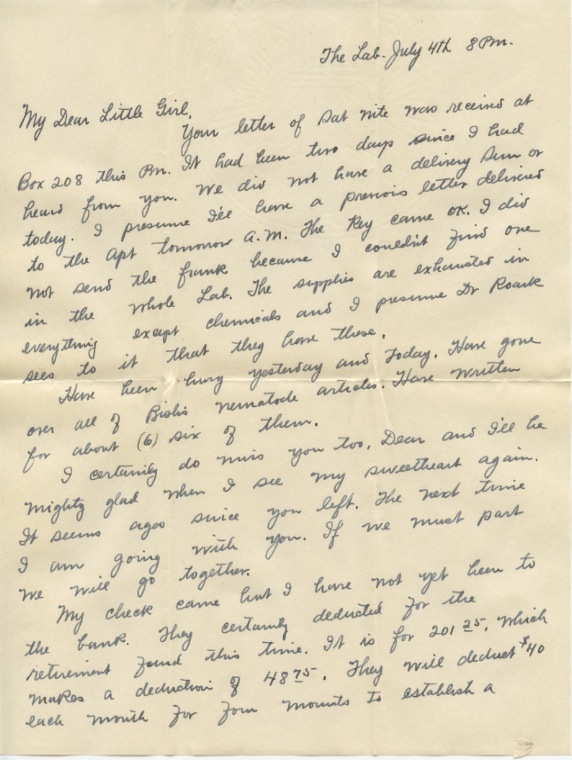 The Lab. July 4th 8 Pm.
My Dear Little Girl,
Your letter of Sat nite was received at
Box 208 this Pm. It had been two days since I had
heard from you. We did not have a delivery Sun or
today. I presume I'll have a previois letter delivered
to the Apt tomorrow A.M. The Key came OK. I did
not send the frank because I couldn't find one
in the whole Lab. The supplies are exhausted in
everything except chemicals and I presume Dr Roark
sees to it that they have these.
Have been busy yesterday and today. Have gone
over all of nematode articles. Have written
for about (6) six of them.
I certainly do miss you too, Dear and I'll be
mighty glad when I see my sweetheart again.
It seems ages since you left. The next time
I am going with you. If we must part
we will go together.
My check came but I have not yet been to
the bank. They certainly deducted for the
retirement fund this time. It is for 201 25, which
makes a deduction of 48 75. They will deduct $40
each month for four months to establish a